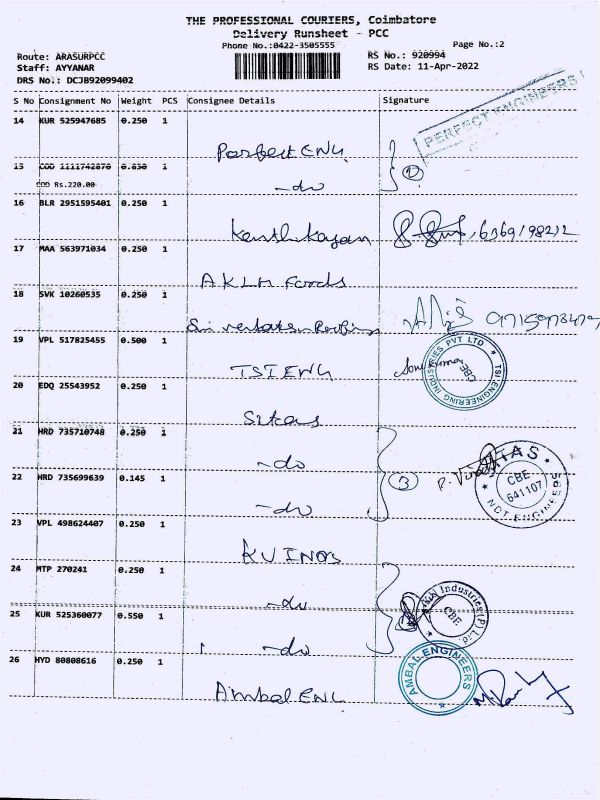 THE PROFESSIONAL COURIERS, Coimbatore
Delivery Runsheet - PCC
Phone No.:0422-3505555
Page No.:2
Route: ARASURPCC
RS No.: 920994
Staff: AYYANAR
RS Date: 11-Apr-2022
DRS No.: DCJB92099402
S No Consignment No Weight PCS Consignee Details Signature
14 KUR 525947685 0.250 1
PERFECT ENGINEERS
Perfect ENG
15 COD 1111742870 0.830 1
COD Rs.220.00
-do
16 BLR 2951595401 0.250 1
17 MAA 563971034 0.250 1
AKLM Foods
18 SVK 10260535 0.250 1
19 VPL 517825455 0.500 1
TSI ENG
TSI ENGINEERING INDUSTRIES PVT LTD
CBE
20 EDQ 25543952 0.250 1
21 HRD 735710748 0.250 1
-do
22 HRD 735699639 0.145 1
-do
CBE
641107
NDT ENGINEERS
23 VPL 498624407 0.250 1
24 MTP 270241 0.250 1
-do
Industries (P) Ltd
CBE
25 KUR 525360077 0.550 1
-do
26 HYD 80808616 0.250 1
Ambal ENG
AMBAL ENGINEERS